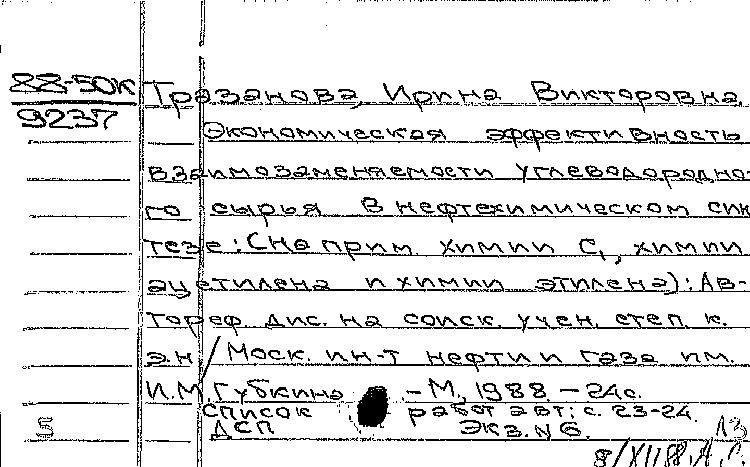 88-50к
9237
Трезанова, Ирина Викторовна.
Экономическая эффективность
взаимозаменяемости углеводородно-
го сырья в нефтехимическом син-
тезе: (На прим. химии С₁, химии
ацетилена и химии этилена): Ав-
тореф. дис. на соиск. учен. степ. к.
э.н / Моск. ин-т нефти и газа им.
И.М. Губкина. - М., 1988. - 24с.
Список работ авт: с. 23-24.
ДСП Экз. N 6.
8/XII 88.